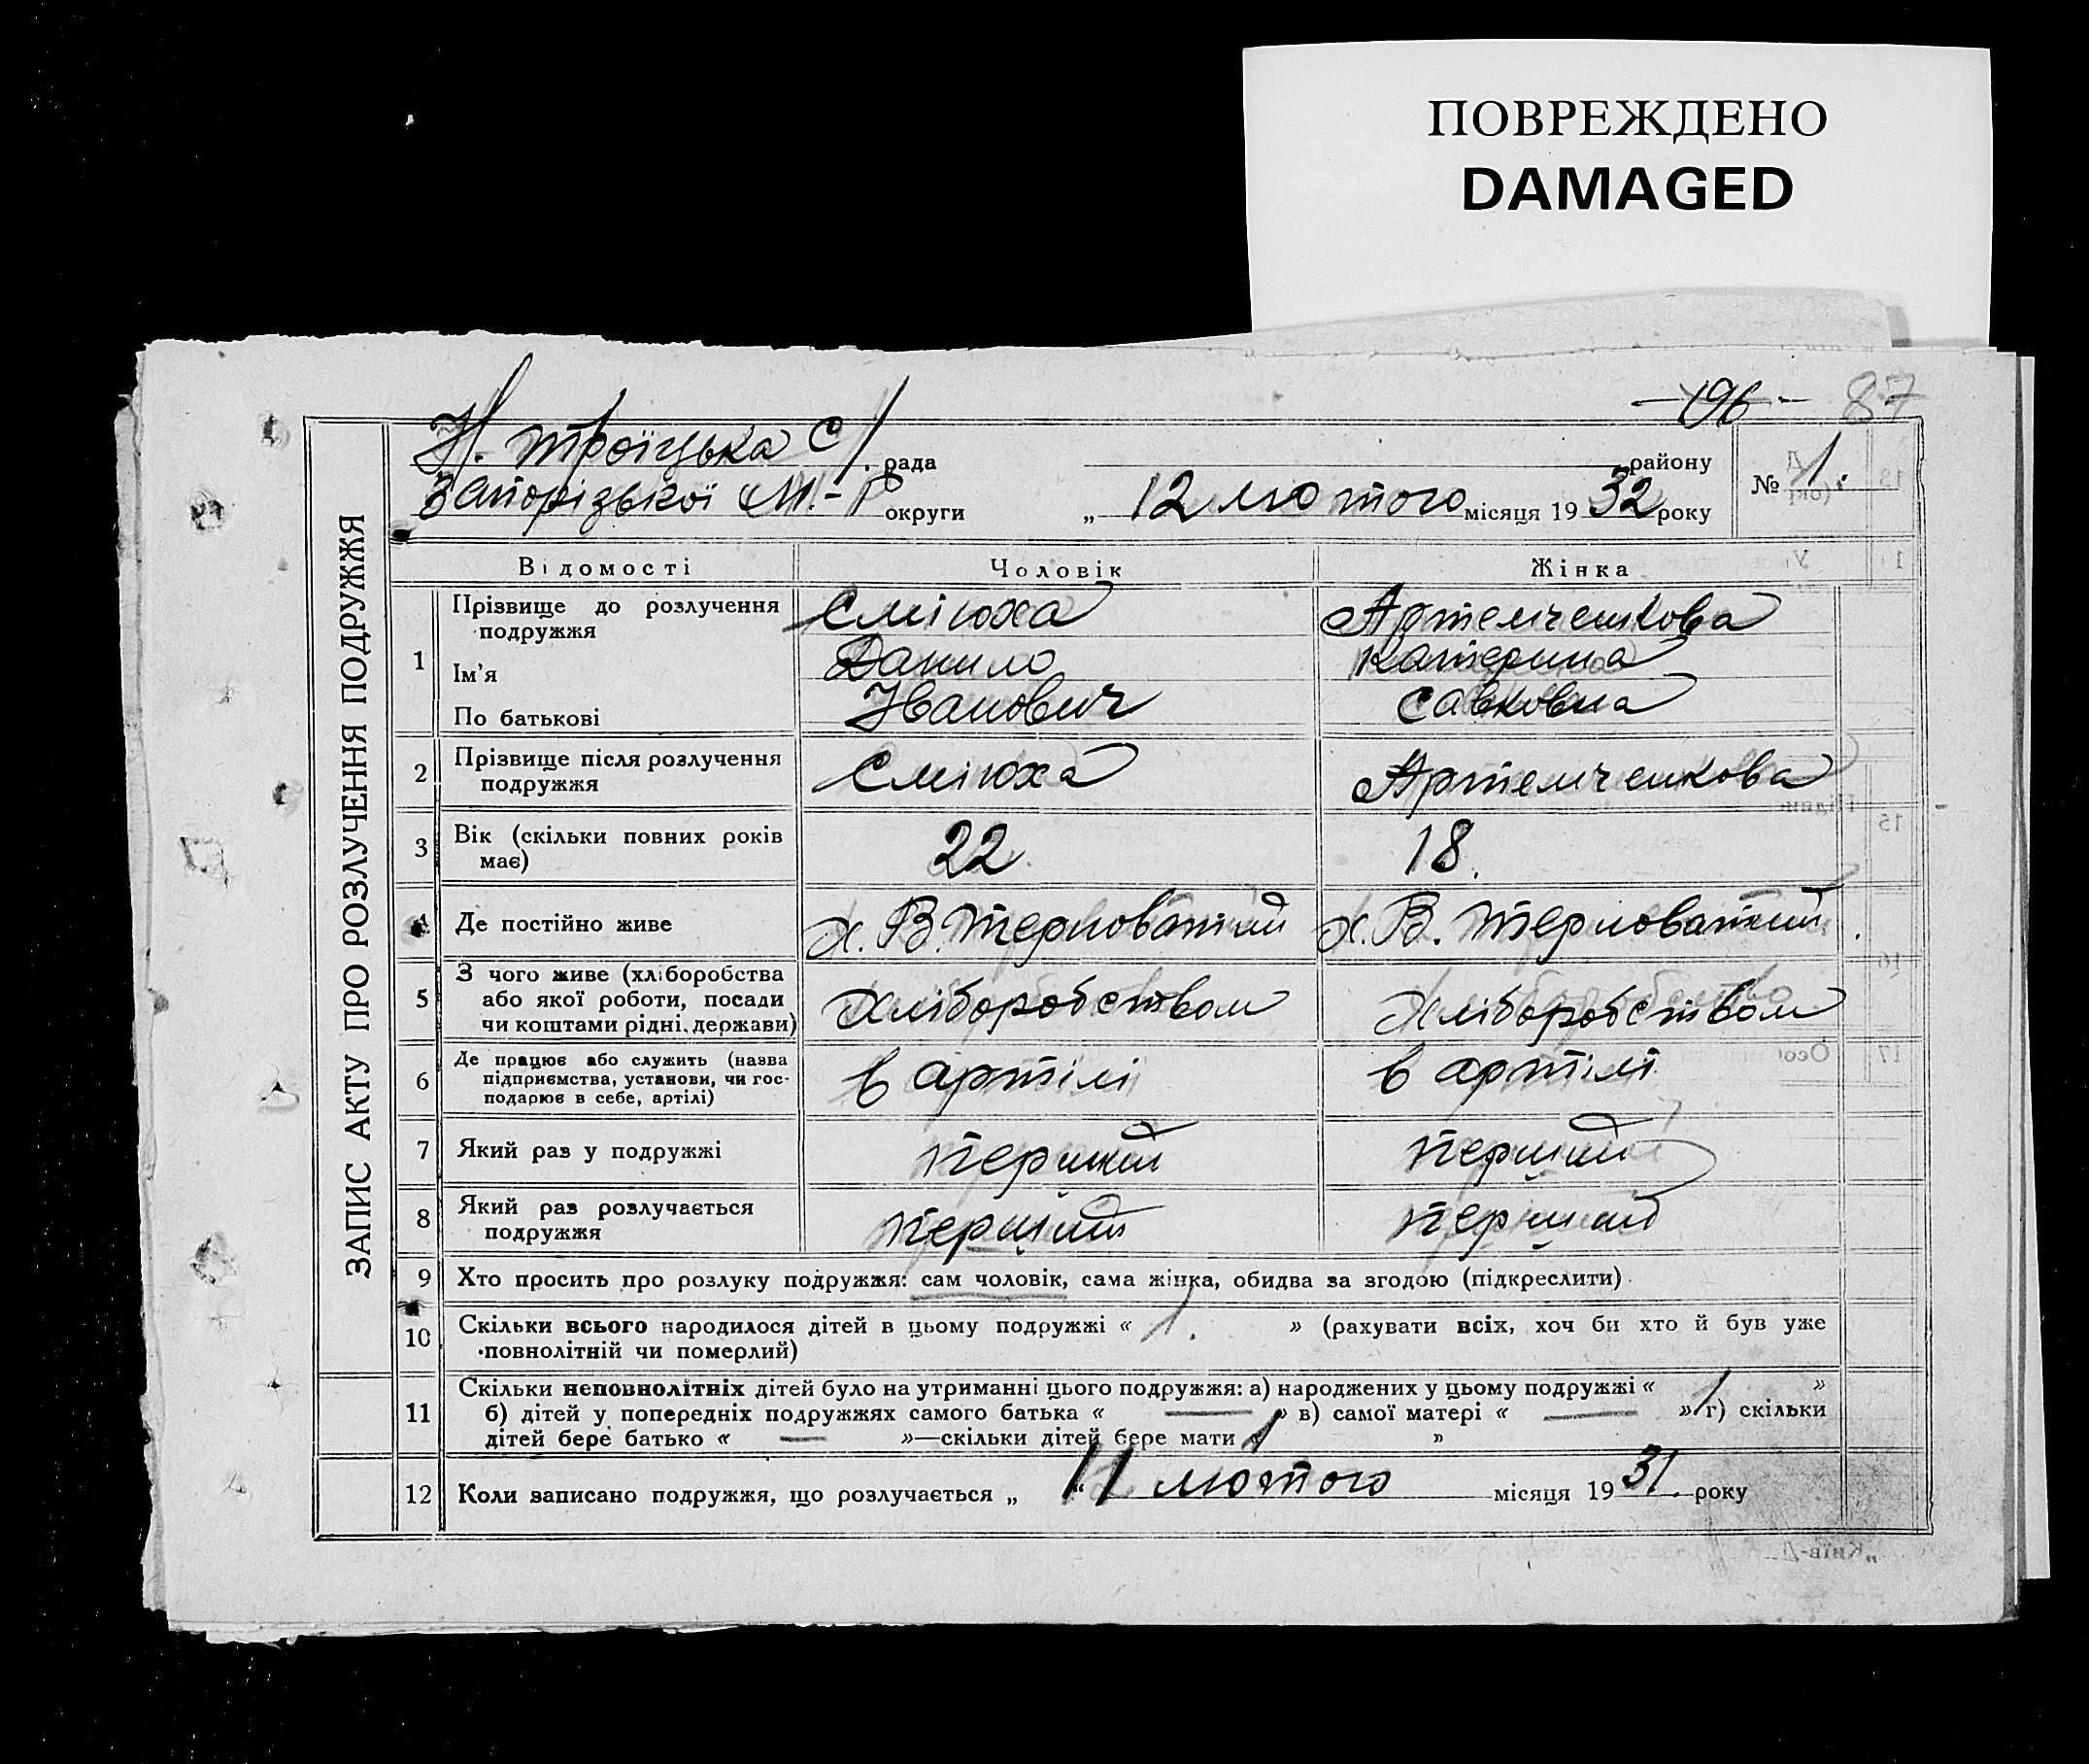 ПОВРЕЖДЕНО
DAMAGED
196 - 87
ЗАПИС АКТУ ПРО РОЗЛУЧЕННЯ ПОДРУЖЖЯ
Н. Троїцька С/ рада району
№ 1.
Запорізької М.-Р округи „ 12 лютого місяця 1932 року
Відомості Чоловік Жінка
1
Прізвище до розлучення подружжя Сміюха Артемченкова
Ім'я Данило Катерина
По батькові Іванович Савковна
2 Прізвище після розлучення
подружжя Сміюха Артемченкова
3 Вік (скільки повних років
має) 22 18.
4 Де постійно живе х. В. Терноватий х. В. Терноватий
5 З чого живе (хліборобства
або якої роботи, посади
чи коштами рідні, держави) Хліборобством Хліборобством
6 Де працює або служить (назва
підприємства, установи, чи гос-
подарює в себе, артілі) в артілі в артілі
7 Який раз у подружжі перший перший
8 Який раз розлучається
подружжя перший перший
9 Хто просить про розлуку подружжя: сам чоловік, сама жінка, обидва за згодою (підкреслити)
10 Скільки всього народилося дітей в цьому подружжі « 1. » (рахувати всіх, хоч би хто й був уже
повнолітній чи померлий)
11 Скільки неповнолітніх дітей було на утриманні цього подружжя: а) народжених у цьому подружжі « 1 »
б) дітей у попередніх подружжях самого батька « — » в) самої матері « — » г) скільки
дітей бере батько « — »—скільки дітей бере мати « 1 »
12 Коли записано подружжя, що розлучається „ 11 “ лютого місяця 1931. року